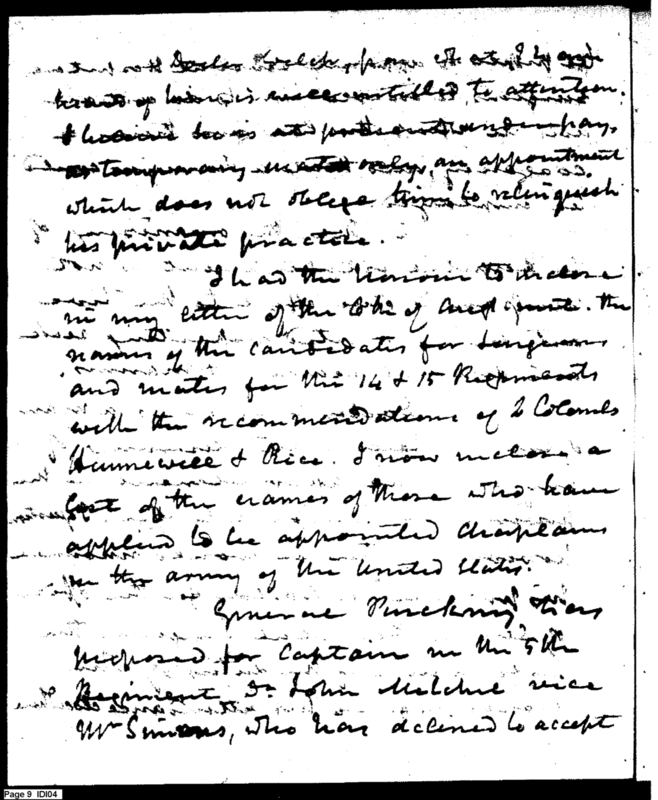 Doctor Welch, from what I have
heard of him is well entitled to attention.
I believe he is at present under pay,
as temporary mate only, an appointment
which does not oblege him to relinquish
his private practice.
I had the honour to inclose
in my letter of the the
names of the candidates for surgeons
and mates for the 14 & 15 Regiments
with the recommendations of
Hunnewell & Rice. I now inclose a
list of the names of those who have
applied to be appointed chaplains
in the army of the United States.
General Pinckney has
proposed for Captain in the 5th
Regiment Dr John vice
Mr Simons, who has declined to accept
Page 9 IDI04